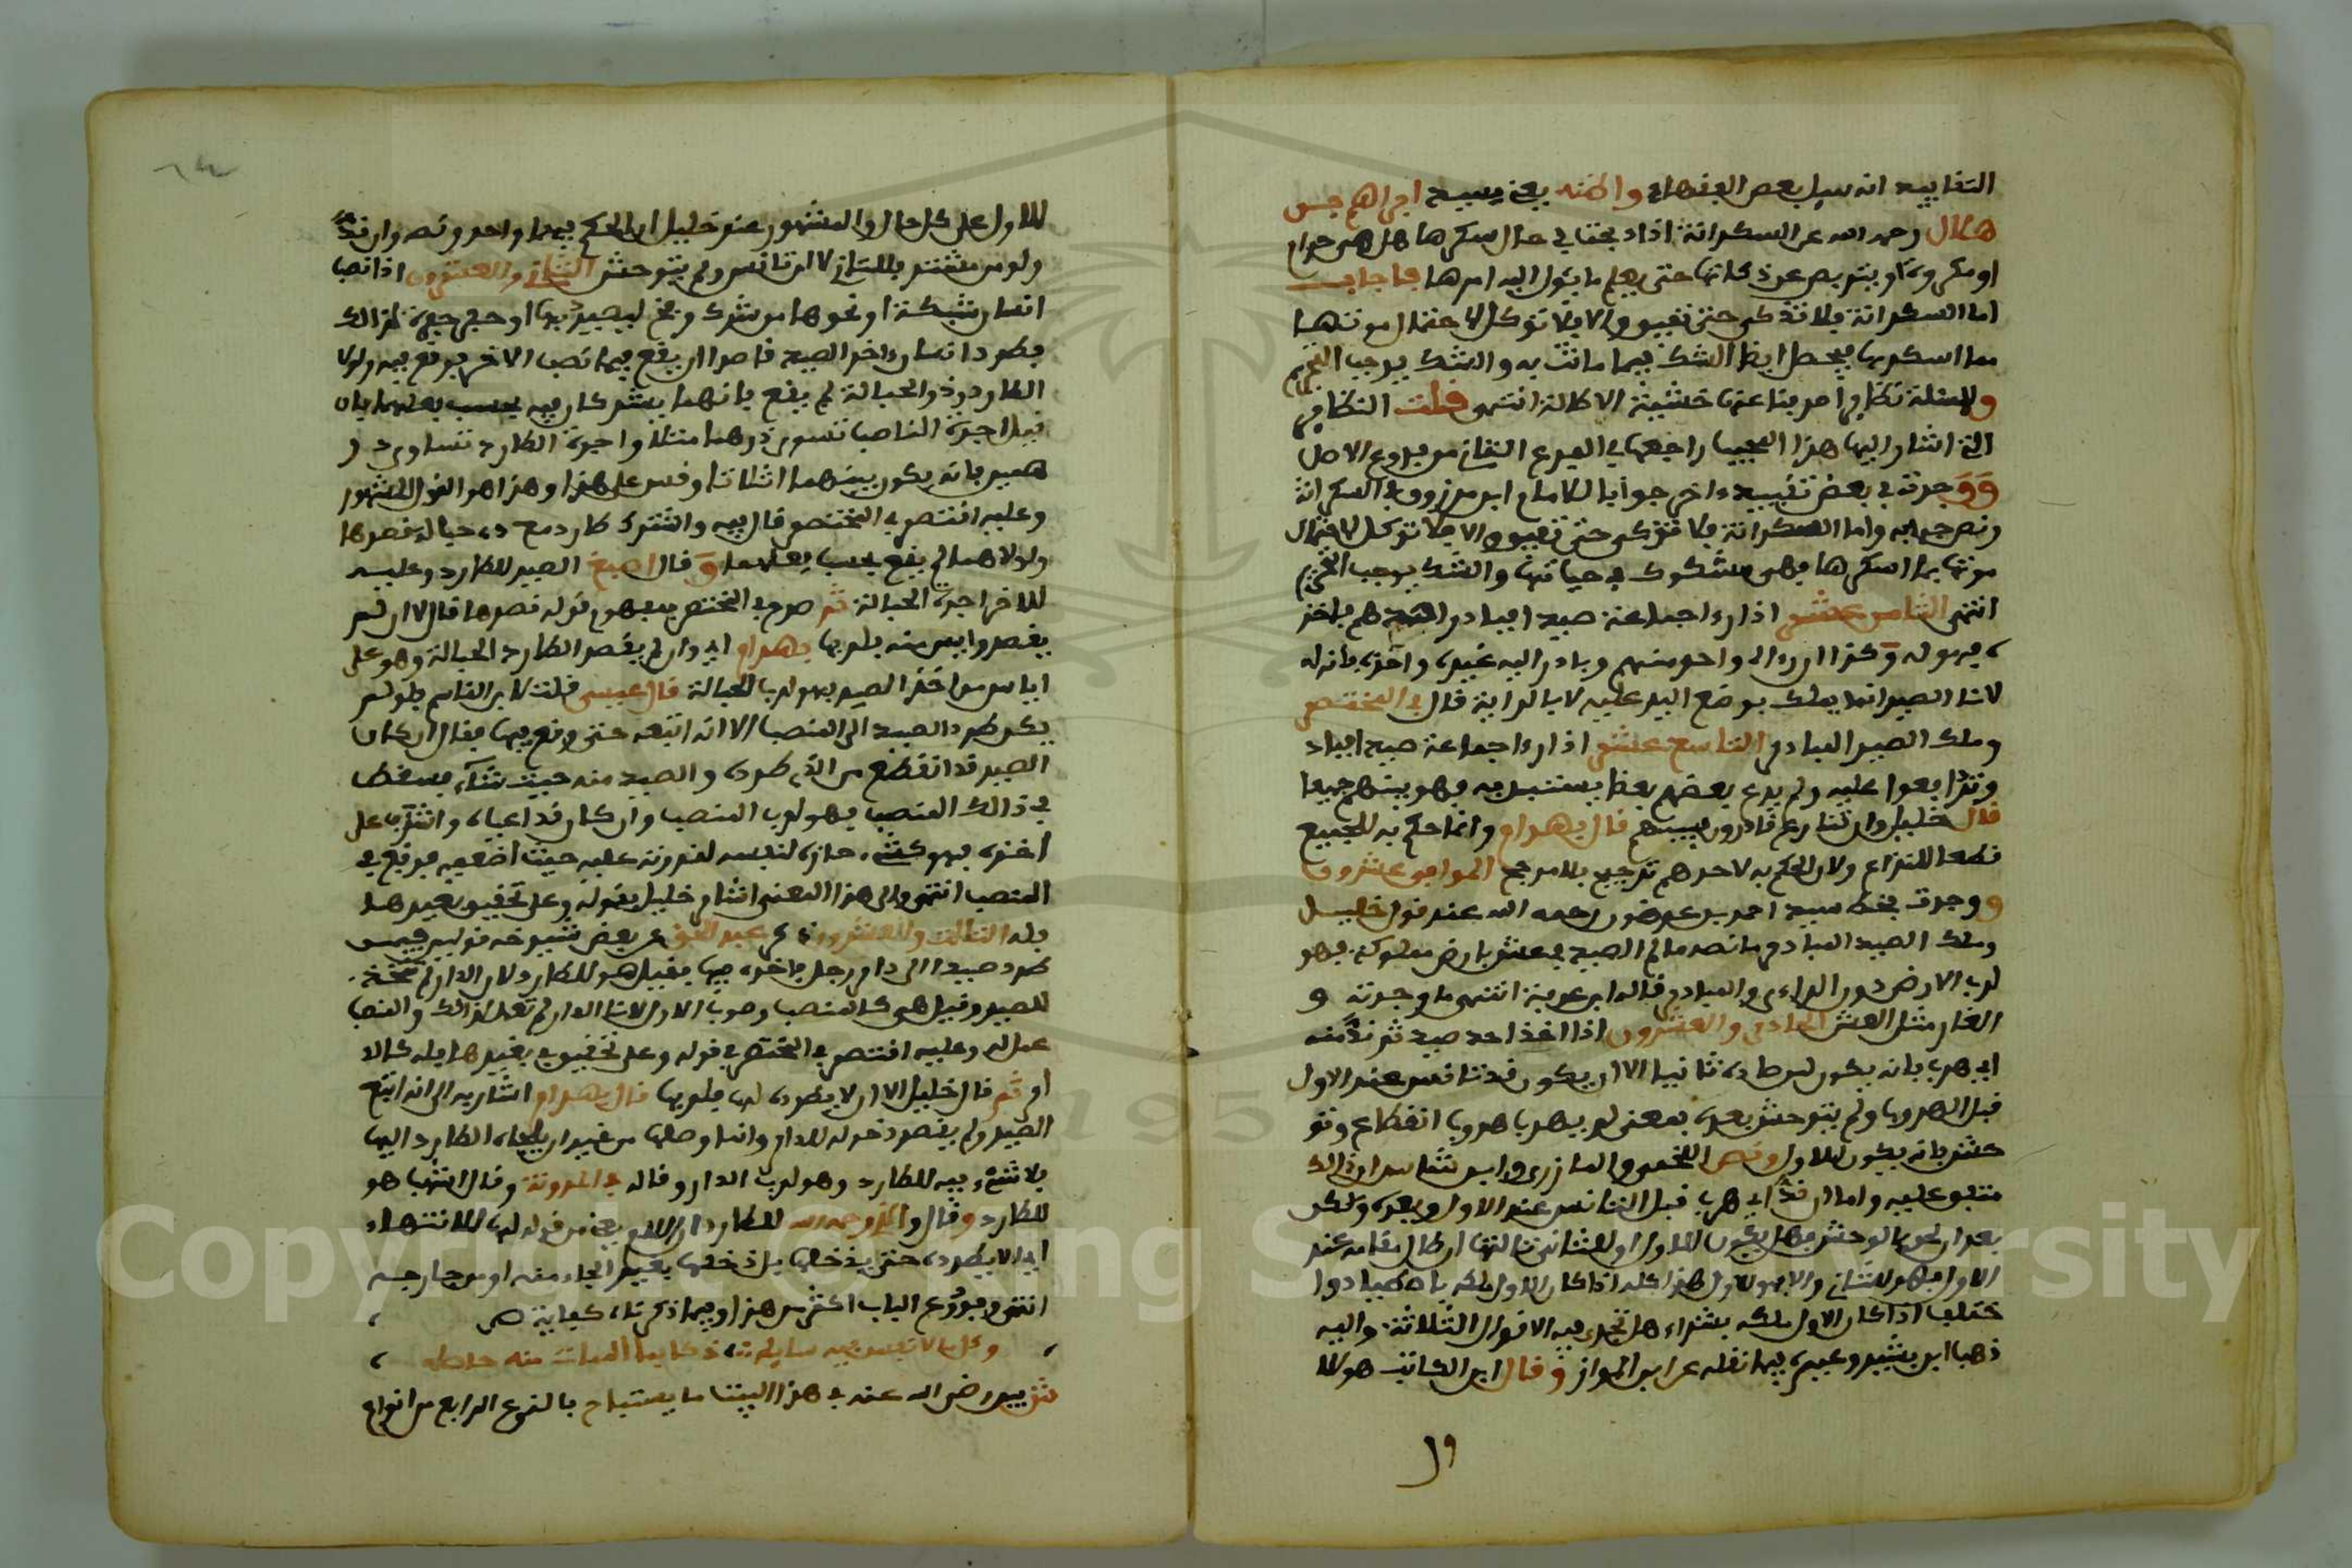 التقاييد انه سيل بعض الفقهاء واظنه يعني سيدي ابراهيم بن
هلال رحمه الله عن السكرانة اذا ذبحت في حال سكرها هل هي حرام
او مكروه او يتربص عن ذكاتها حتى يعلم ما يئول اليه امرها فاجاب
اما السكرانة فلا تذكى حتى تفيق والا فلا تؤكل لاحتمال موتها
مما اسكرها فيحصل ايضا الشك فيما ماتت به والشك يوجب التحريم
وللمسئلة نظاير اضربنا عنها خشية الاطالة انتهى قلت النظاير
التي اشار اليها هذا المجيب راجعها في الفرع الثاني من فروع الاصل
ووجدت في بعض تقييد ءاخر جوابا للامام ابن مرزوق في السكرانة
ونص جوابه واما السكرانة فلا تذكى حتى تفيق والا فلا توكل لاحتمال
موتها بما اسكرها فهي مشكوك في حياتها والشك يوجب التحريم
انتهى الثامن عشر اذا رءا جماعة صيدا فبادر احدهم فاخذ
ه فهو له وكذا ان رءاه واحد منهم وبادر اليه غيره واخذه فانه له
لان الصيد انما يملك بوضع اليد عليه لا بالرءاية قال في المختصر
وملك الصيد المبادر التاسع عشر اذا رءا جماعة صيدا فبادر
وتدافعوا عليه ولم يدع بعضهم بعضا يستبد به فهو بينهم جميعا
قال خليل وان تنازع قادرون فبينهم قال بهرام وانما حكم به للجميع
قطعا للنزاع ولان الحكم به لاحدهم ترجيح بلا مرجح الموافي عشرون
ووجدت بخط سيدي احمد بن عرضون رحمه الله عند قول خليل
وملك الصيد المبادر ما نصه مالم الصيد في عش بارض مملوكة فهو
لرب الارض دون الراءي والمبادر قاله ابن عرفة انتهى ما وجدته و
الغار مثل العش الحادي والعشرون اذا اخذ احد صيدا ثم ند منه
اي هرب فانه يكون لمن صاده ثانيا الا ان يكون قد تانس عند الاول
قبل الهروب ولم يتوحش بعده بمعنى لم يهرب هروب انقطاع وتو
حش فانه يكون للاول ونص اللخمي والمازري وابن شاس ان ذالك
متفق عليه واما ان ند اي هرب قبل التانس عند الاول وبعده ولكن
بعد ان لحق بالوحش فهل يكون للاول او للثاني ثالثها ان طال مقامه عند
الاول فهو للثاني والا فهو للاول هذا كله اذا كان الاول ملكه باصطياد وا
ختلف اذا كان الاول ملكه بشراء هل تجري فيه الاقوال الثلاثة واليه
ذهب ابن بشير وغيره فيما نقله عن ابن المواز وقال ابن الكاتب هو للا
ول
للاول على كل حال والمشهور عند خليل ان الحكم فيهما واحد ونصه وان ند
ولو من مشتر فللثاني لا ان تانس ولم يتوحش الثاني والعشرون اذا نصب
انسان شبكة او نحوها من شرك وفخ ليصيد بها او حفر حفرة لذالك
فطرد انسان ءاخر الصيد قاصدا ان يقع فيما نصب الاخر فوقع فيه ولولا
الطارد وذو الحبالة لم يقع فانهما يشتركان فيه بحسب فعلهما فان
قيل اجرة الناصب تسوى درهما مثلا واجرة الطارد تساوي در
همين فانه يكون بينهما اثلاثا وقس على هذا وهذا هو القول المشهور
وعليه اقتصر في المختصر قال فيه واشترك طارد مع ذي حبالة قصدها
ولولاهما لم يقع بحسب فعلهما وقال اصبغ الصيد للطارد وعليه
للاخر اجرة الحبالة ثم صرح في المختصر بمفهوم قوله قصدها قال الا ان لم
يقصد وايس منه فلربها بهرام اي وان لم يقصد الطارد الحبالة وهو على
اياس من اخذ الصيد فهو لرب الحبالة قال عيسى قلت لابن القاسم فلو لم
يكن طرد الصيد الى المنصب الا انه اتبعه حتى وقع فيها فقال ان كان
الصيد قد انقطع من الذي طرده والصيد منه حيث شاء فسقط
في ذالك المنصب فهو لرب المنصب وان كان قد اعياه واشرف على
اخذه فهو كشيء حازه لنفسه لقدرته عليه حيث اضعفه فوقع في
المنصب انتهى والى هذا المعنى اشار خليل بقوله وعلى تحقيق بغيرها
فله الثالث والعشرون عبد الحق عن بعض شيوخه قوليه فيمن
طرد صيدا الى دار رجل فاخذه فيها فقيل هو للطارد لان الدار لم تتخذ
للصيد وقيل هي كالمنصب وصوب الاول لان الدار لم تعمل لذالك والمنصب
عمل له وعليه اقتصر في المختصر في قوله وعلى تحقيق بغيرها فله كالد
ار ثم قال خليل الا ان لا يطرده لها فلربها قال بهرام اشار به الى انه اتبع
الصيد ولم يقصد دخوله للدار وانما وصلها من غير ان يلجاه الطارد اليها
فلا شيء فيه للطارد وهو لرب الدار وقاله في المدونة وقال اشهب هو
للطارد
اي الا يطرده حتى يدخلها بل دخلها بغير الجاء منه او من جارحه
انتهى وفروع الباب اكثر من هذا وفيما ذكرناه كفاية ص
ثم بين رضي الله عنه في هذا البيت ما يستباح بالنوع الرابع من انواع